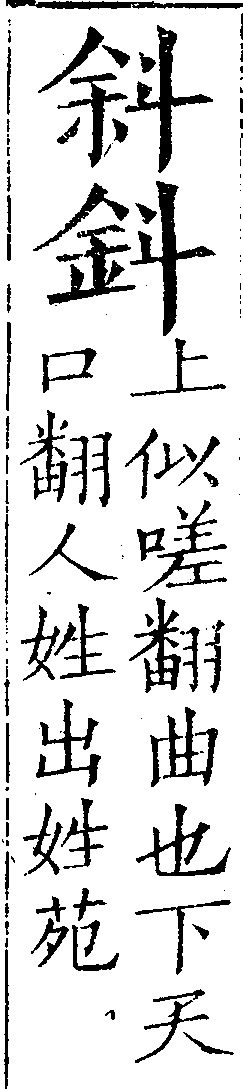 斜鈄
上似嗟翻曲也下天
口翻人姓出姓苑